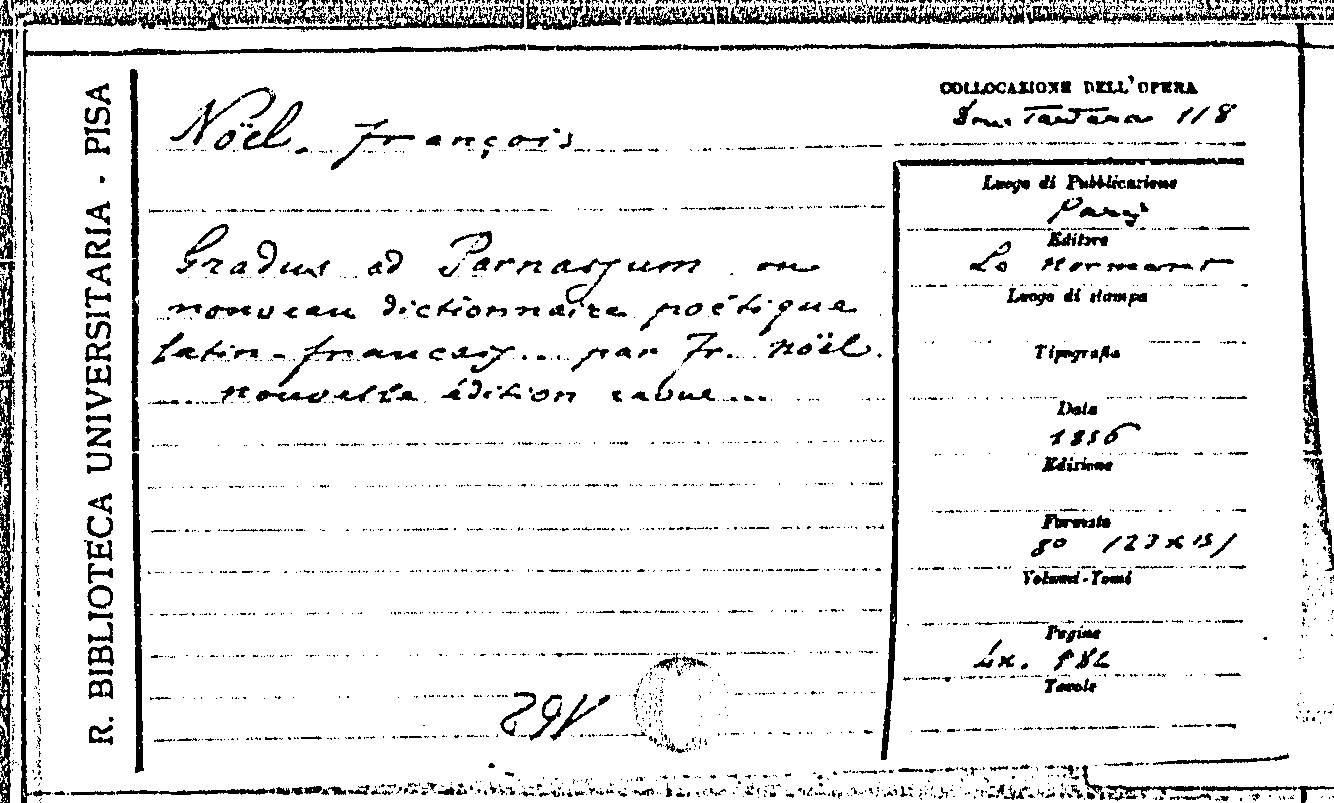 R. BIBLIOTECA UNIVERSITARIA - PISA
Nöel. François
Gradus ad Parnassum ou
nouveau dictionnaire poétique
latin-français... par Fr. Nöel.
... nouvelle édition revue...
COLLOCAZIONE DELL'OPERA
118
Luogo di Pubblicazione
Paris
Editore
Le Normant
Luogo di stampa
Tipografia
Data
Edizione
Formato
8° (23x15)
Volumi-Tomi
Pagine
Tavole